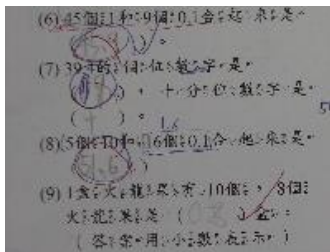 (6) 45個1和9個0.1合起來是
(45.9)。
(7) 39.4的個位數字是
( )。十分位數字是
( )。
(8) 5個10和16個0.1合起來是
(51.6)
(9) 1盒火龍果有10個，8個
火龍果是(0.8)盒。
(答案用小數表示)